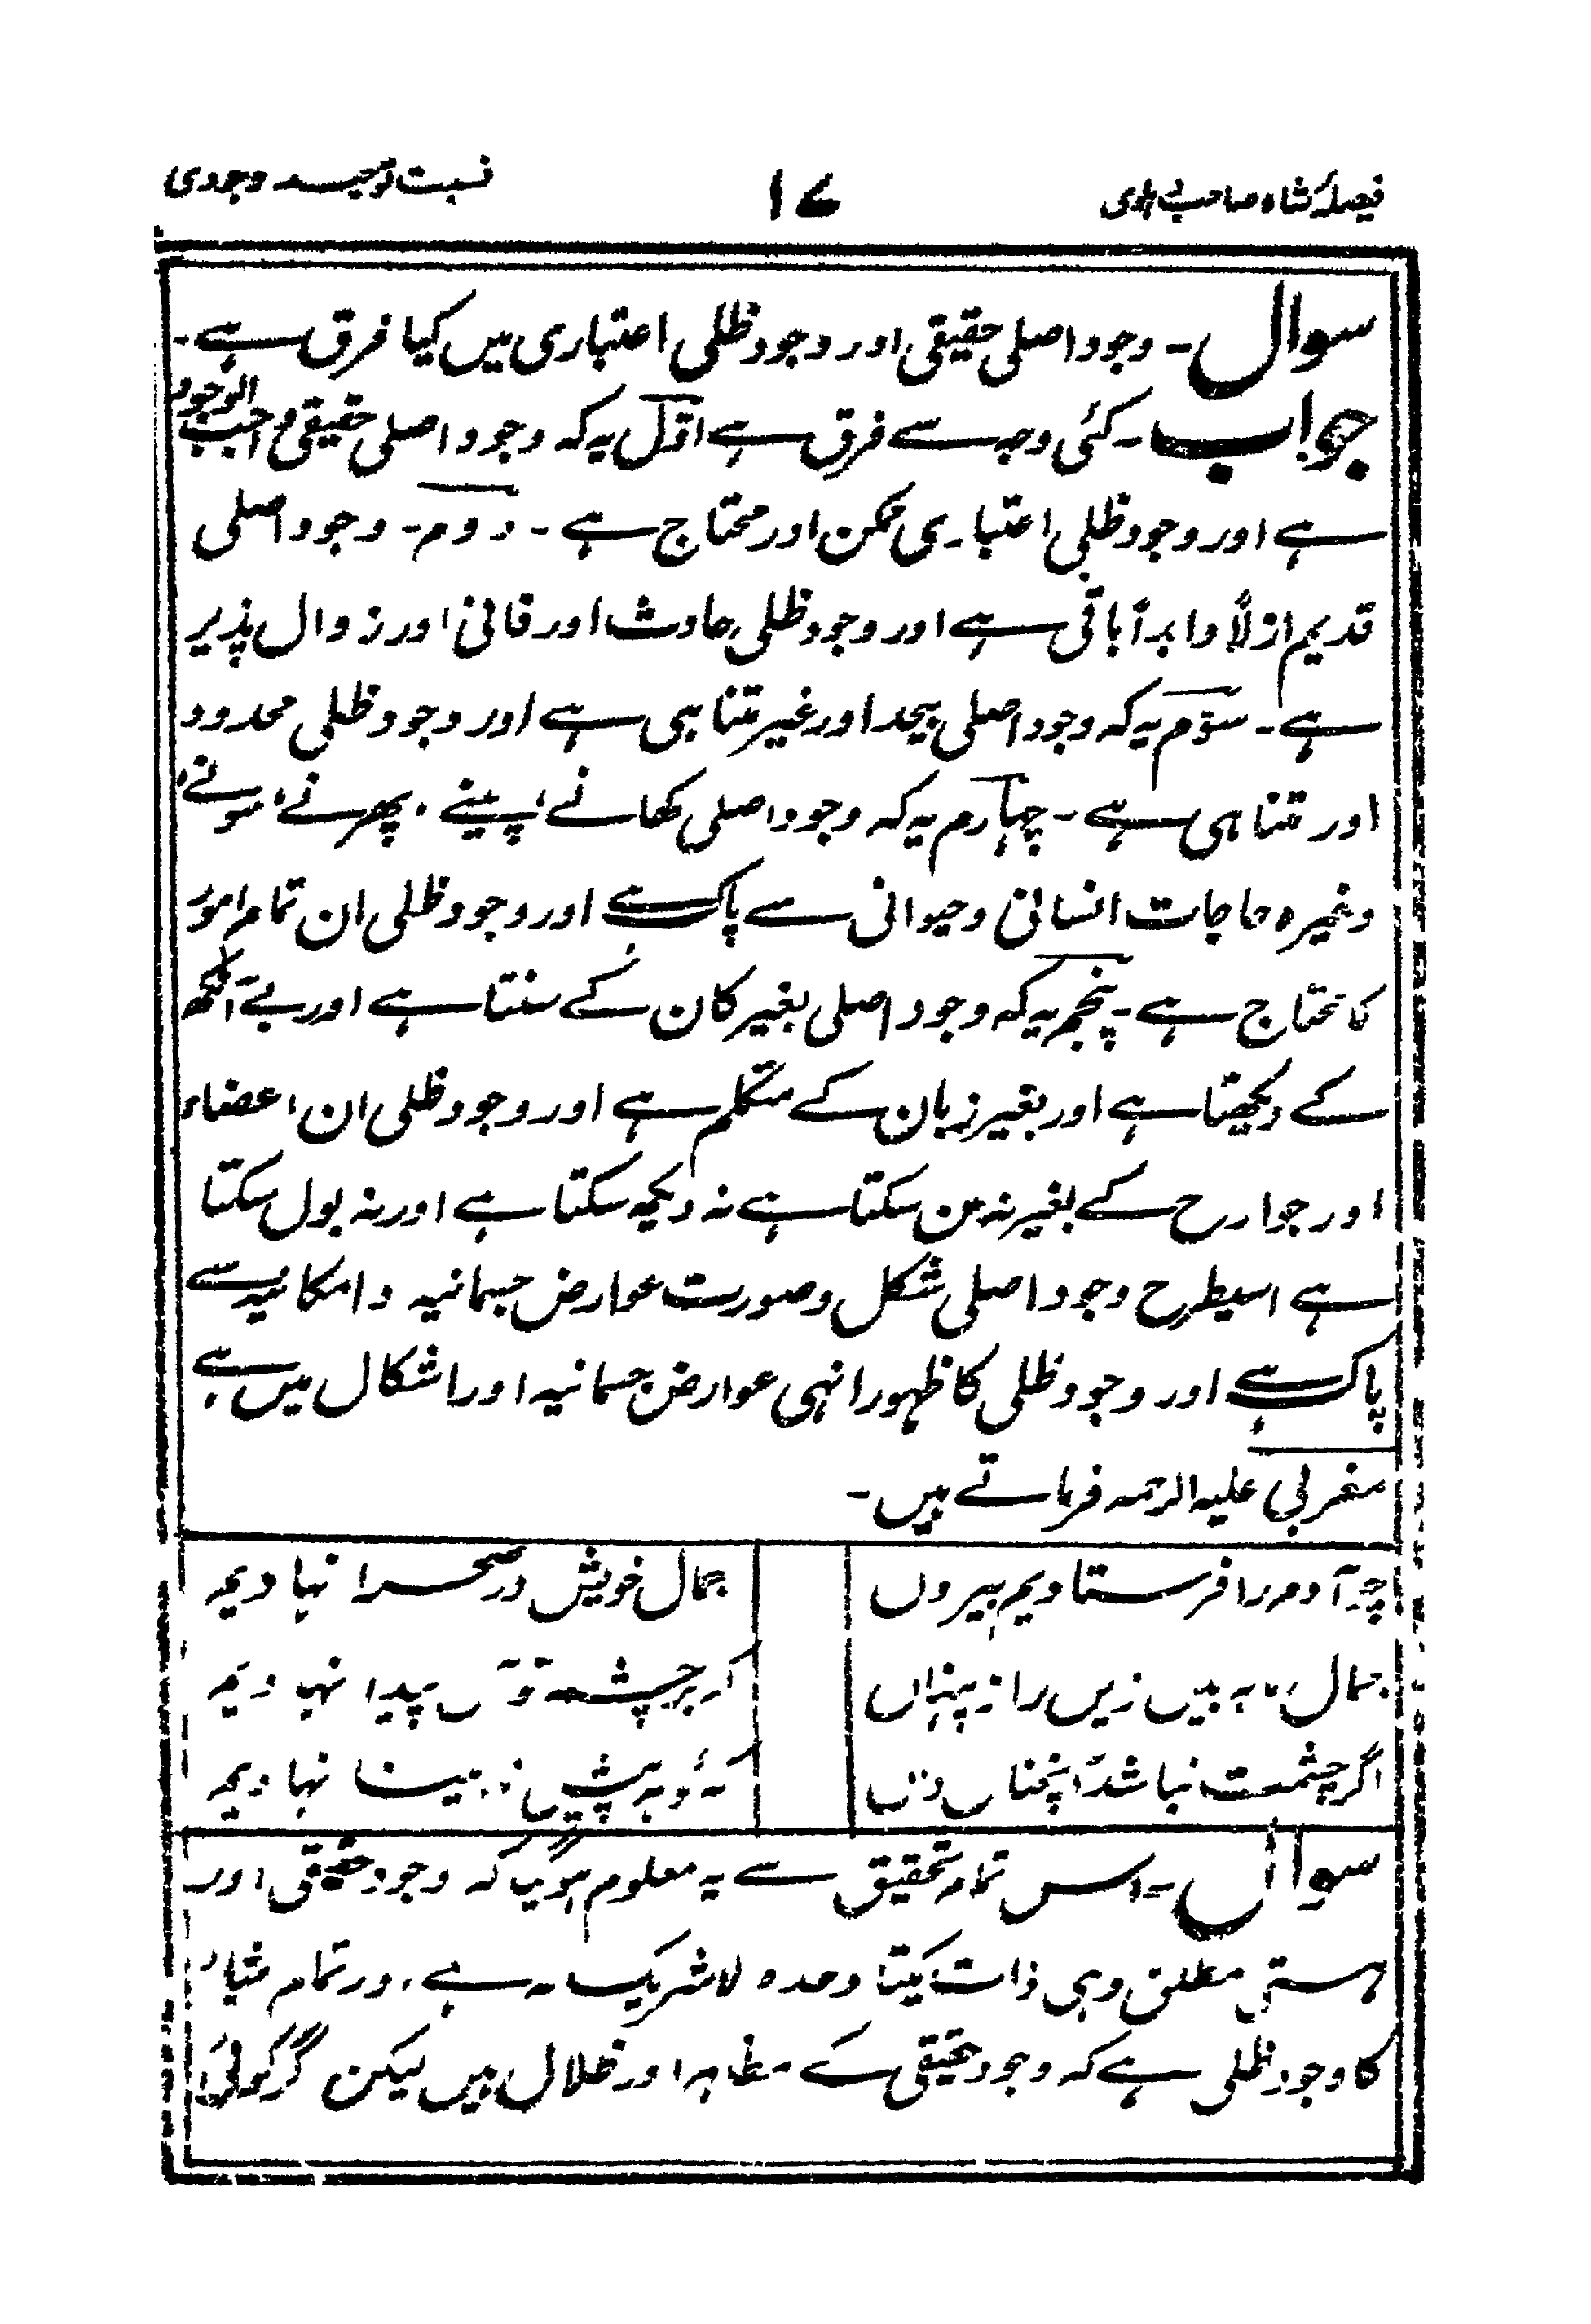 فیصلۂ شاہ صاحب دہلوی ۱۷ نسبت توحید وجودی
سوال۔ وجود اصلی حقیقی اور وجود ظلی اعتباری میں کیا فرق ہے۔
جواب۔ کئی وجہ سے فرق ہے اوّل یہ کہ وجود اصلی حقیقی واجب الوجود
ہے اور وجود ظلی اعتباری ممکن اور محتاج ہے۔ دوم۔ وجود اصلی
قدیم ازلاً وابداً باقی ہے اور وجود ظلی حادث اور فانی اور زوال پذیر
ہے۔ سوّم یہ کہ وجود اصلی بیحد اور غیر متناہی ہے اور وجود ظلی محدود
اور متناہی ہے۔ چہارم یہ کہ وجود اصلی کھانے، پینے، پھرنے، سونے،
وغیرہ حاجات انسانی وحیوانی سے پاک ہے اور وجود ظلی ان تمام امور
کا محتاج ہے۔ پنجم یہ کہ وجود اصلی بغیر کان کے سنتا ہے اور بے آنکھ
کے دیکھتا ہے اور بغیر زبان کے متکلم ہے اور وجود ظلی ان اعضاء
اور جوارح کے بغیر نہ سن سکتا ہے نہ دیکھ سکتا ہے اور نہ بول سکتا
ہے اسیطرح وجود اصلی شکل وصورت عوارض جسمانیہ وامکانیہ سے
پاک ہے اور وجود ظلی کا ظہور انہی عوارض جسمانیہ اور اشکال میں ہے
مغربی علیہ الرحمہ فرماتے ہیں۔
چو آدم را فرستادیم بیروں جمال خویش در صحرا نہادیم
جمال ما ببیں زیں راز پنہاں اگر چشمت پیدا نہادیم
اگر چشمت نباشد آنچناں داں کہ گوہر پیش نابینا نہادیم
سوال۔ اس تمام تحقیق سے یہ معلوم ہوگیا کہ وجود حقیقی اور
ہستی مطلق وہی ذات یکتا وحدہ لاشریک لہ ہے، اور تمام اشیاء
کا وجود ظلی ہے کہ وجود حقیقی کے مظاہر اور ظلال ہیں لیکن گر کوئی